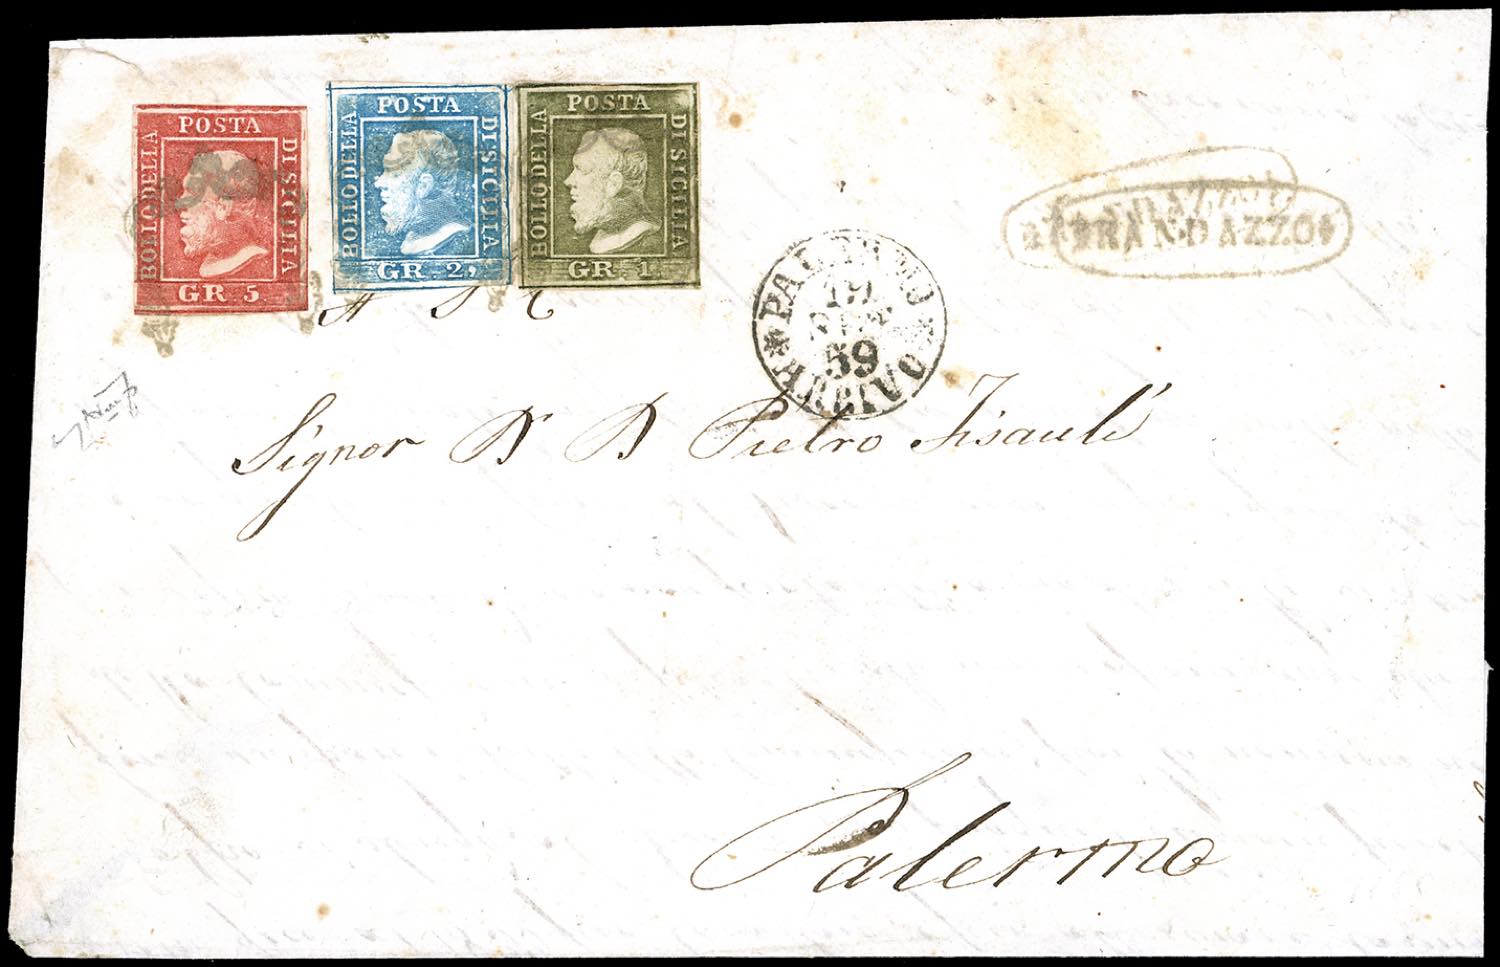 POSTA
BOLLO DELLA
DI SICILIA
GR. 5
POSTA
BOLLO DELLA
DI SICILIA
GR. 2,
POSTA
BOLLO DELLA
DI SICILIA
GR. 1.
RANDAZZO
PALERMO
19
59
ARRIVO
Signor D. D. Pietro
Palermo